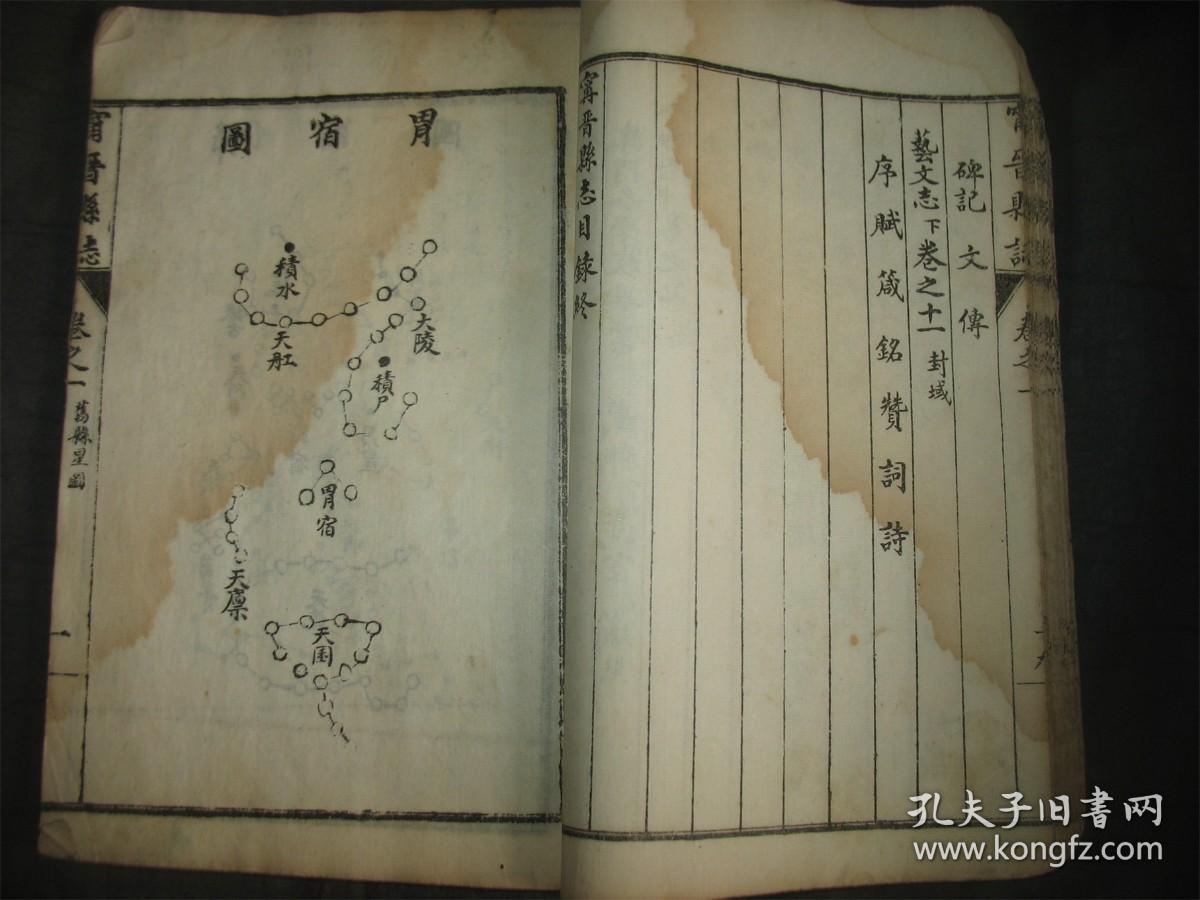 甯晉縣誌
卷之一
碑記 文 傳
藝文志下 卷之十一 封域
序 賦 箴 銘 贊 詞 詩
甯晉縣志目錄終
胃宿圖
積水
大陵
天舡
積尸
胃宿
天廩
天囷
甯晉縣志
卷之一
舊縣星圖
一
孔夫子旧书网
www.kongfz.com